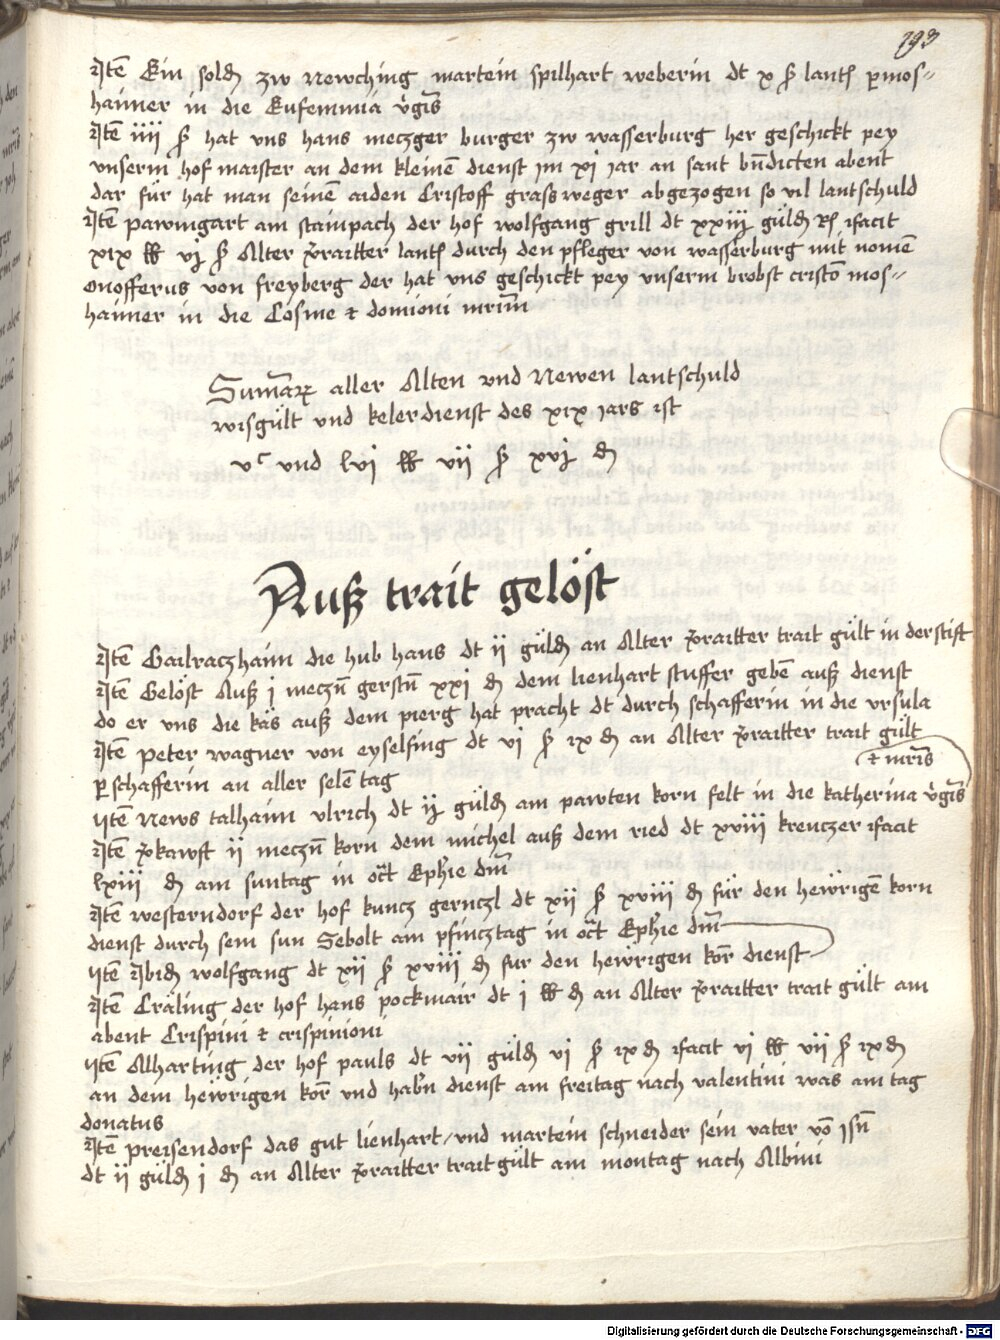 193
Itē Ein sold zw Newching martein spilhart weberin dt x ß lantß p mos=
haimer in die Eufemmia v̊gīs
Itē iiij ß hat vns hans meczger burger zw wasserburg her geschickt pey
vnserm hof maister an dem kleinē dienst im xi jar an sant bn̄dicten abent
dar für hat man seinē aiden Cristoff grasweger abgezogen so vil lantschuld
Itē pawmgart am stainpach der hof wolfgang grill dt xxiij güld Rh̄ ıfacit
xix ℔ vj ß Alter v̊raitter lantß durch den pfleger von wasserburg mit nomē
onofferus von freyberg der hat vns geschickt pey vnserm brobst cristō mos=
haimer in die Cosme ⁊ domioni mr̄im
Sum̄arꝝ aller Alten vnd Newen lantschuld
wisgült vnd kelerdienst des xix jars ist
vᶜ vnd lvi ℔ vij ß xvj ₰
Auß trait gelöst
Itē Gailraczhaim die hub hans dt ij güld an Alter v̊raitter trait gült in der stift
Itē Gelöst Auß i meczn̄ gerstn̄ xxi ₰ dem lienhart stuffer gebē auß dienst
do er vns die käs auß dem pierg hat pracht dt durch schafferin in die vrsula
Itē Peter wagner von eyselfing dt vi ß ix ₰ an Alter v̊raitter trait gült
⁊ mr̄is
p schafferin an aller selē tag
Itē News talhaim vlrich dt ij güld am pawten korn felt in die katherina v̊gīs
Itē v̊kawft ij meczn̄ korn dem michel auß dem ried dt xviii kreuczer ıfacit
lxiii ₰ am suntag in oct̄ Ephīe dm̄
Itē westerndorf der hof kuncz gernczl dt xij ß xviii ₰ für den hewrigē korn
dienst durch sein sun Sebolt am pfincztag in oct̄ Ephīe dm̄
Itē Ibid wolfgang dt xij ß xviii ₰ fur den hewrigen kor̄ dienst
Itē Cräling der hof hans pockmair dt i ℔ ₰ an Alter v̊raitter trait gült am
abent Crispini ⁊ crispinioni
Itē Alharting der hof pauls dt vij güld vi ß ix ₰ ıfacit vi ℔ vij ß ix ₰
an dem hewrigen kor̄ vnd habn̄ dienst am freitag nach valentini was am tag
donatus
Itē preisendorf das gut lienhart / vnd martein schneider sein vater vō isn̄
dt ij güld i ₰ an Alter v̊raitter trait gült am montag nach Albini
Digitalisierung gefördert durch die Deutsche Forschungsgemeinschaft - DFG